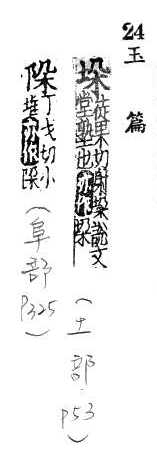 24
玉篇
垛 徒果切射垛說文
堂塾也亦作
(土部 P53)
丁戈切小
堆亦作
(阜部 P325)